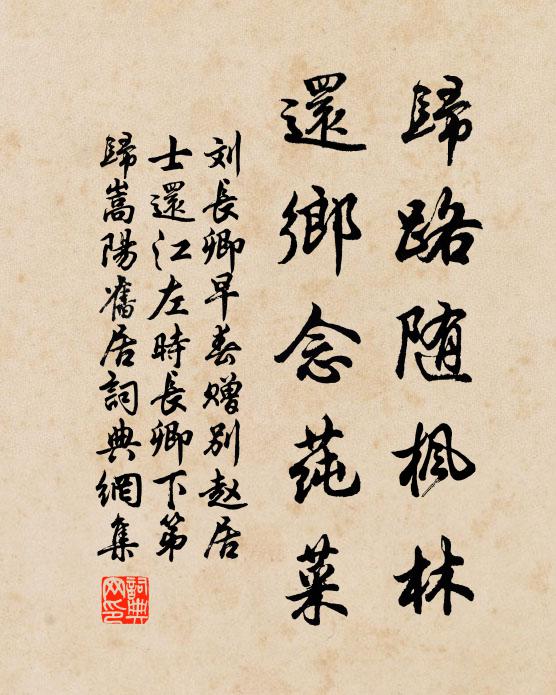 歸路随楓林
還鄉念蒓菜
刘長卿早春赠别赵居
士還江左時長卿下第
歸嵩陽舊居詞典網集
詞典网印